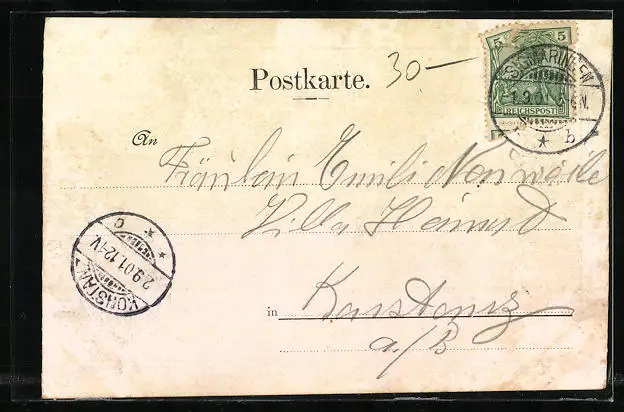 Postkarte.
30-
5 5
REICHSPOST
SIGMARINGEN
1.9.
N.
* b
An
Fräulein Emilie
Villa
KONSTANZ
2.9.01.12-1V.
* * c
in Konstanz
a/B